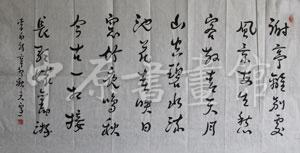 謝亭離別處
風景每生愁
客散青天月
山空碧水流
池花春映日
窗竹夜鳴秋
今古一相接
長歌懷舊游